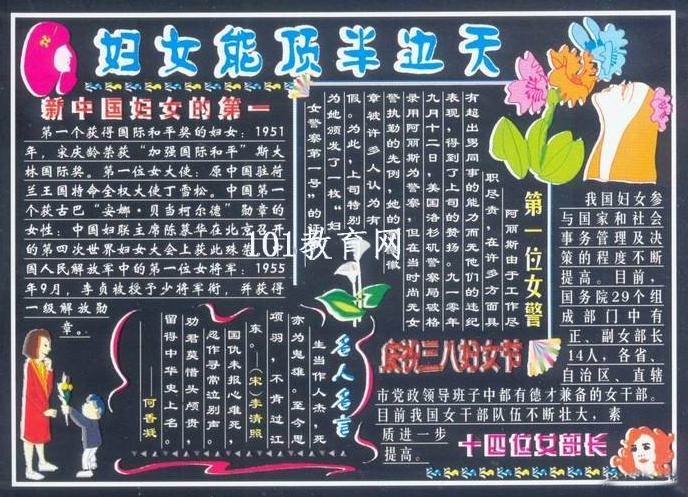 妇女能顶半边天
新中国妇女的第一
第一个获得国际和平奖的妇女：1951
年，宋庆龄荣获“加强国际和平”斯大
林国际奖。第一位女大使：原中国驻荷
兰王国特命全权大使丁雪松。中国第一
个获古巴“安娜·贝当柯尔德”勋章的
女性：中国妇联主席陈慕华在北京召开
的第四次世界妇女大会上获此殊荣。
国人民解放军中的第一位女将军：1955
年9月，李贞被授予少将军衔，并获得
一级解放勋
章。
第一位女警
阿丽斯由于工作尽
职尽责，在许多方面具
有超出男同事的能力而无他们的违纪
表现，得到了上司的赞扬。九一零年
九月十二日，美国洛杉矶警察局破格
录用阿丽斯为警察，但在当时尚无女
警执勤的先例，她的徽
章被许多人认为有
假。为此，上司特别
为她颁发了一枚“妇
女警察第一号”的
101教育网
名人名言
生当作人杰，死
亦为鬼雄。至今思
项羽，不肯过江
东。——（宋）李清照
国仇未报心难死，
忍作寻常泣别声。
劝君莫惜头颅贵，
留得中华史上名。
——何香凝
庆祝三八妇女节
我国妇女参
与国家和社会
事务管理及决
策的程度不断
提高。目前，
国务院29个组
成部门中有
正、副女部长
14人，各省、
自治区、直辖
市党政领导班子中都有德才兼备的女干部。
目前我国女干部队伍不断壮大，素
质进一步
提高。
十四位女部长